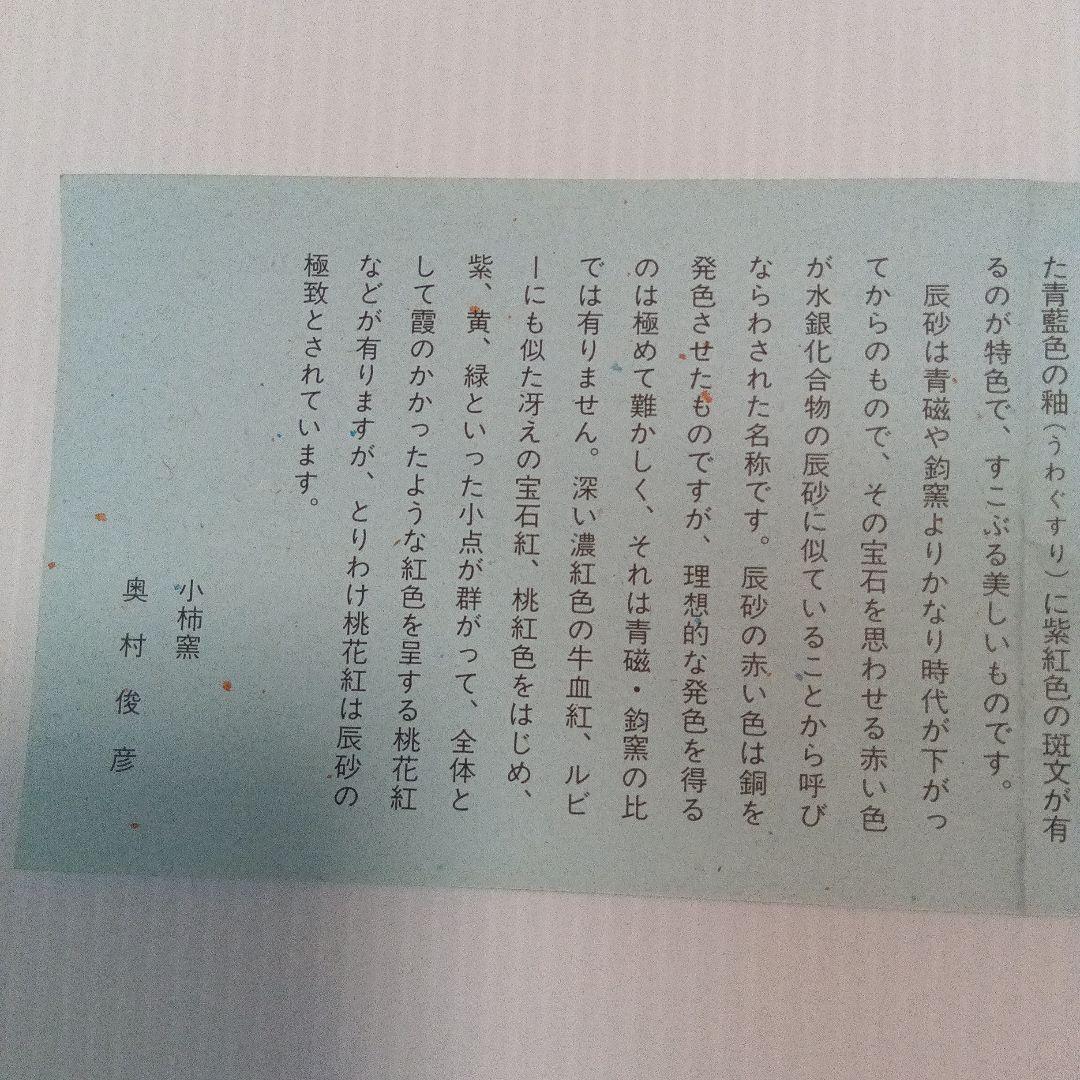 た青藍色の釉（うわぐすり）に紫紅色の斑文が有
るのが特色で、すこぶる美しいものです。
辰砂は青磁や鈞窯よりかなり時代が下がっ
てからのもので、その宝石を思わせる赤い色
が水銀化合物の辰砂に似ていることから呼び
ならわされた名称です。辰砂の赤い色は銅を
発色させたものですが、理想的な発色を得る
のは極めて難かしく、それは青磁・鈞窯の比
では有りません。深い濃紅色の牛血紅、ルビ
ーにも似た冴えの宝石紅、桃紅色をはじめ、
紫、黄、緑といった小点が群がって、全体と
して霞のかかったような紅色を呈する桃花紅
などが有りますが、とりわけ桃花紅は辰砂の
極致とされています。
小柿窯
奥村俊彦